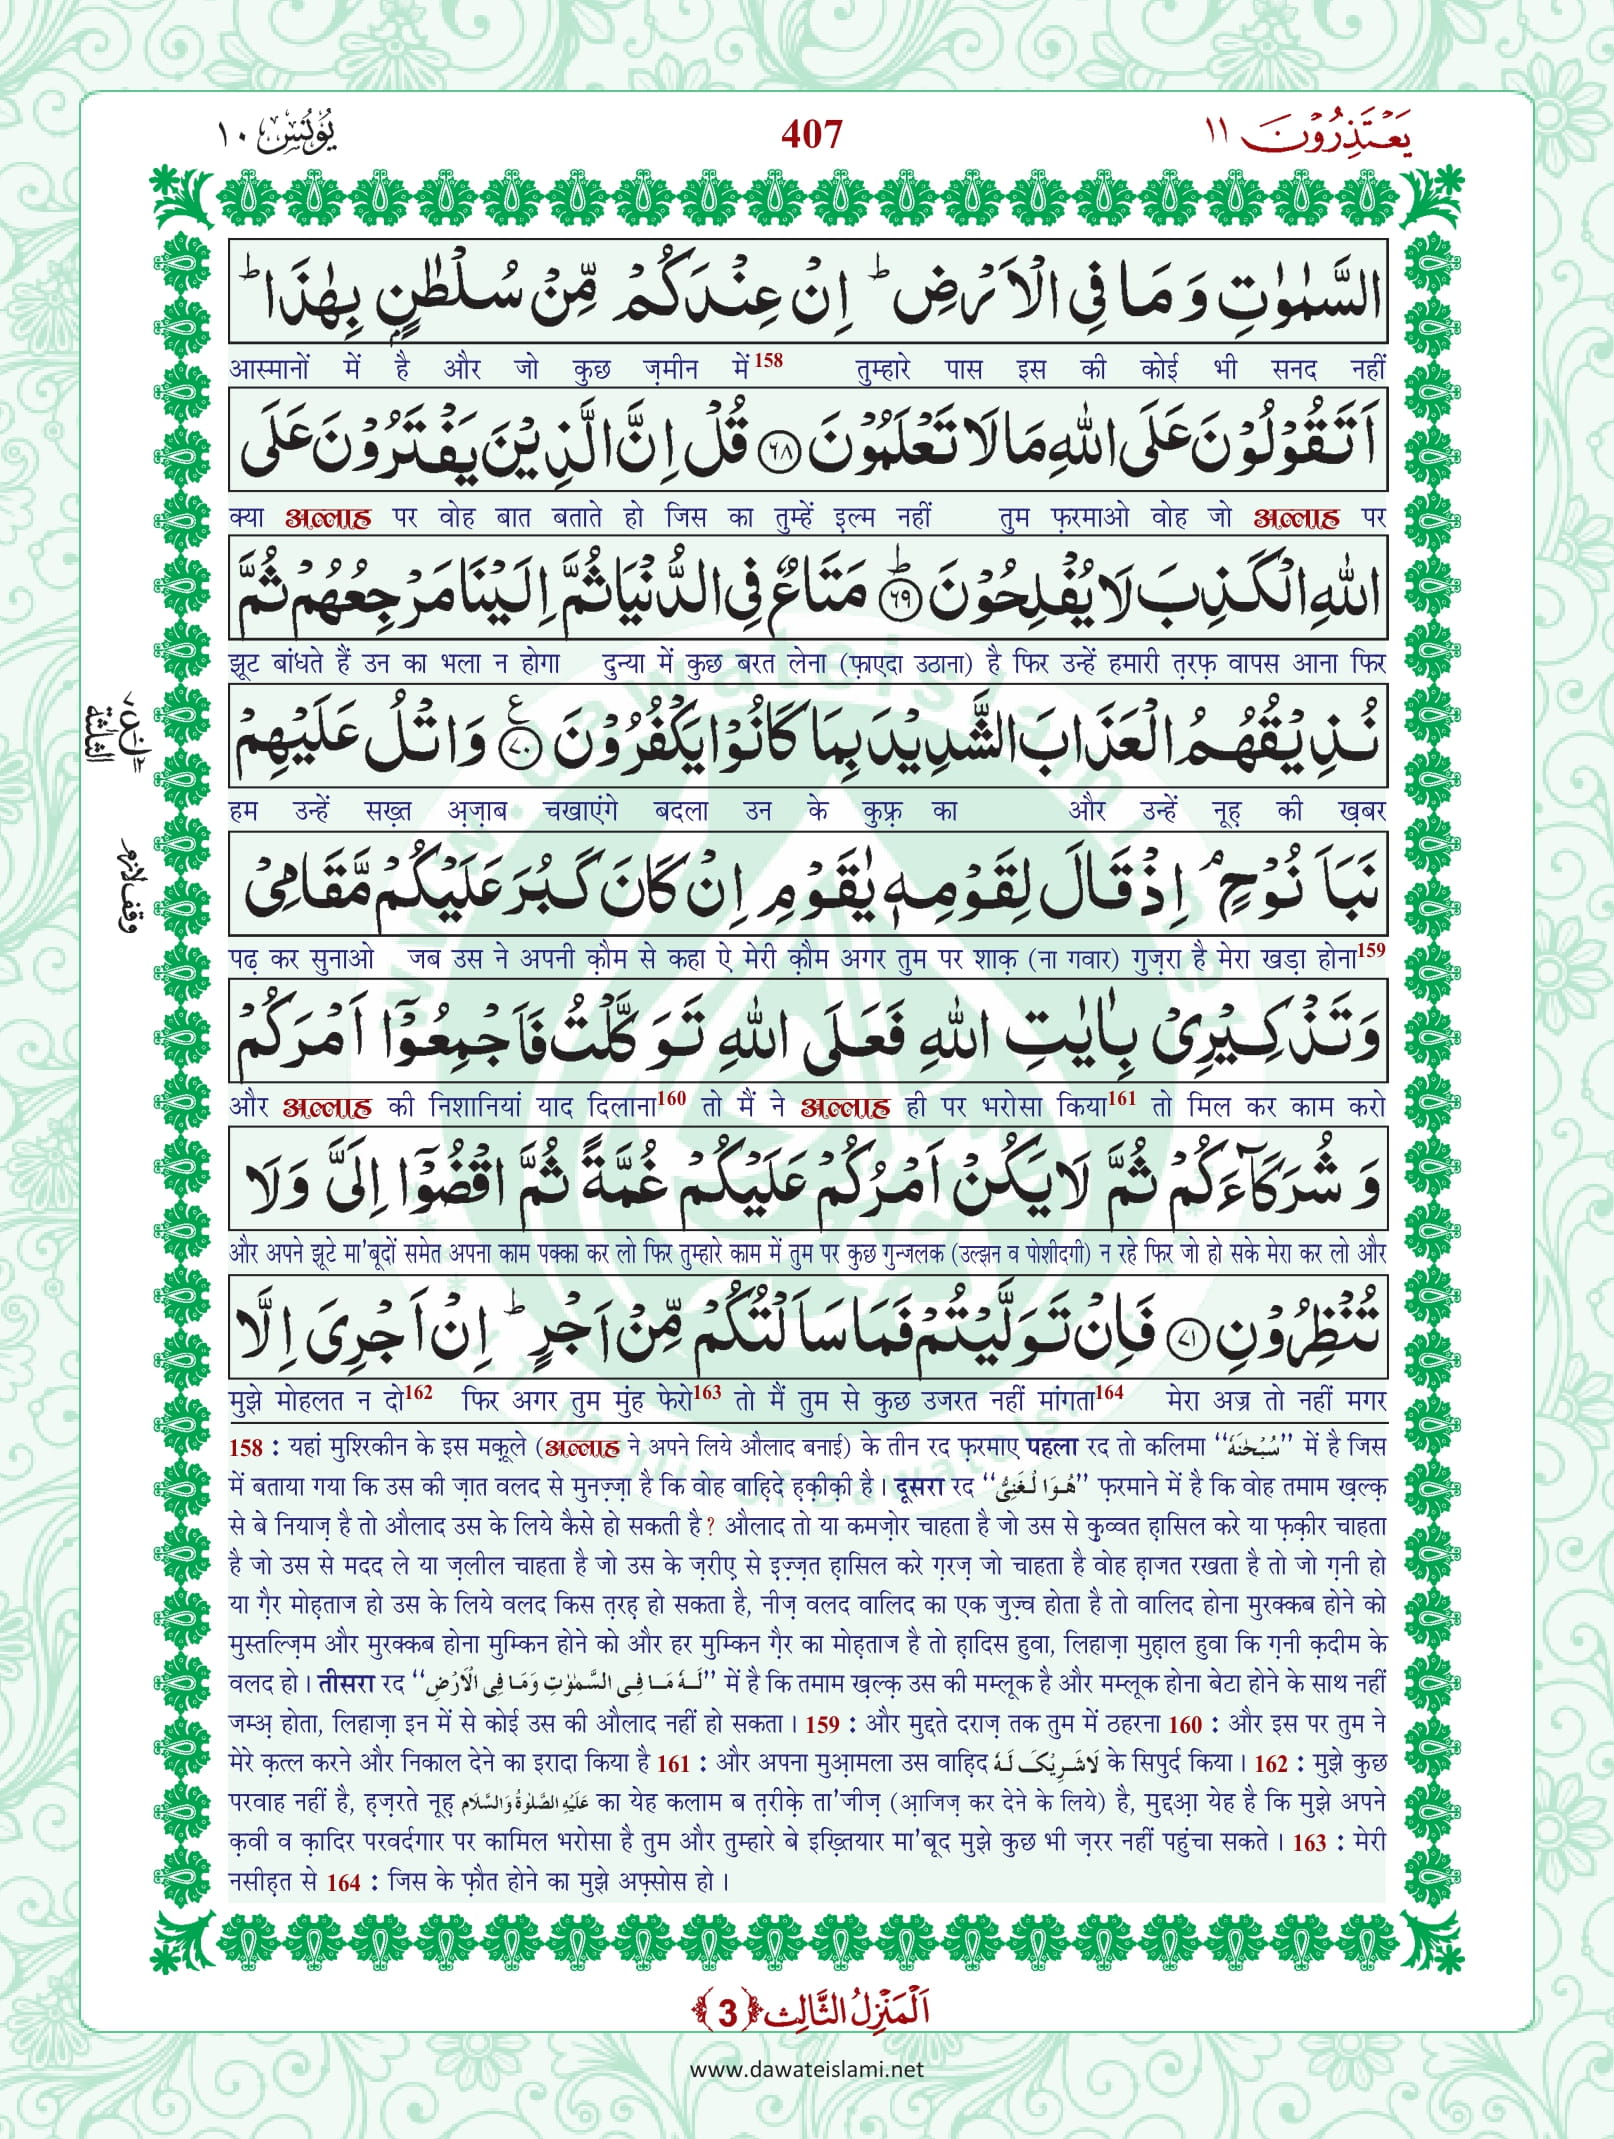 يَعْتَذِرُوْنَ ١١
407
يُوْنُس ١٠
السَّمٰوٰتِ وَ مَا فِی الْاَرْضِ ؕ اِنْ عِنْدَكُمْ مِّنْ سُلْطٰنٍۭ بِهٰذَا ؕ
आस्मानों में है और जो कुछ ज़मीन में158 तुम्हारे पास इस की कोई भी सनद नहीं
اَتَقُوْلُوْنَ عَلَی اللّٰهِ مَا لَا تَعْلَمُوْنَ ﴿۶۸﴾ قُلْ اِنَّ الَّذِیْنَ یَفْتَرُوْنَ عَلَی
क्या अल्लाह पर वोह बात बताते हो जिस का तुम्हें इल्म नहीं तुम फ़रमाओ वोह जो अल्लाह पर
اللّٰهِ الْكَذِبَ لَا یُفْلِحُوْنَ ﴿ؕ۶۹﴾ مَتَاعٌ فِی الدُّنْیَا ثُمَّ اِلَیْنَا مَرْجِعُهُمْ ثُمَّ
झूट बांधते हैं उन का भला न होगा दुन्या में कुछ बरत लेना (फ़ाएदा उठाना) है फिर उन्हें हमारी त़रफ़ वापस आना फिर
نُذِیْقُهُمُ الْعَذَابَ الشَّدِیْدَ بِمَا كَانُوْا یَكْفُرُوْنَ ﴿۷۰﴾ع وَ اتْلُ عَلَیْهِمْ
हम उन्हें सख़्त अ़ज़ाब चखाएंगे बदला उन के कुफ़्र का और उन्हें नूह़ की ख़बर
نَبَاَ نُوْحٍ ۘ اِذْ قَالَ لِقَوْمِهٖ یٰقَوْمِ اِنْ كَانَ كَبُرَ عَلَیْكُمْ مَّقَامِیْ
पढ़ कर सुनाओ जब उस ने अपनी क़ौम से कहा ऐ मेरी क़ौम अगर तुम पर शाक़ (ना गवार) गुज़रा है मेरा खड़ा होना159
وَ تَذْكِیْرِیْ بِاٰیٰتِ اللّٰهِ فَعَلَی اللّٰهِ تَوَكَّلْتُ فَاَجْمِعُوْۤا اَمْرَكُمْ
और अल्लाह की निशानियां याद दिलाना160 तो मैं ने अल्लाह ही पर भरोसा किया161 तो मिल कर काम करो
وَ شُرَكَآءَكُمْ ثُمَّ لَا یَكُنْ اَمْرُكُمْ عَلَیْكُمْ غُمَّةً ثُمَّ اقْضُوْۤا اِلَیَّ وَ لَا
और अपने झूटे मा'बूदों समेत अपना काम पक्का कर लो फिर तुम्हारे काम में तुम पर कुछ गुन्जलक (उल्झन व पोशीदगी) न रहे फिर जो हो सके मेरा कर लो और
تُنْظِرُوْنِ ﴿۷۱﴾ فَاِنْ تَوَلَّیْتُمْ فَمَا سَاَلْتُكُمْ مِّنْ اَجْرٍ ؕ اِنْ اَجْرِیَ اِلَّا
मुझे मोहलत न दो162 फिर अगर तुम मुंह फेरो163 तो मैं तुम से कुछ उजरत नहीं मांगता164 मेरा अज्र तो नहीं मगर
الثلٰثة
وقف لازم
158 : यहां मुश्रिकीन के इस मक़ूले (अल्लाह ने अपने लिये औलाद बनाई) के तीन रद फ़रमाए पहला रद तो कलिमा "سُبْحٰنَهٗ" में है जिस
में बताया गया कि उस की ज़ात वलद से मुनज़्ज़ा है कि वोह वाह़िदे ह़क़ीक़ी है। दूसरा रद "هُوَ الْغَنِیُّ" फ़रमाने में है कि वोह तमाम ख़ल्क़
से बे नियाज़ है तो औलाद उस के लिये कैसे हो सकती है? औलाद तो या कमज़ोर चाहता है जो उस से क़ुव्वत ह़ासिल करे या फ़क़ीर चाहता
है जो उस से मदद ले या ज़लील चाहता है जो उस के ज़रीए़ से इ़ज़्ज़त ह़ासिल करे ग़रज़ जो चाहता है वोह ह़ाजत रखता है तो जो ग़नी हो
या ग़ैर मोह़ताज हो उस के लिये वलद किस त़रह़ हो सकता है, नीज़ वलद वालिद का एक जुज़्व होता है तो वालिद होना मुरक्कब होने को
मुस्तल्ज़िम और मुरक्कब होना मुम्किन होने को और हर मुम्किन ग़ैर का मोह़ताज है तो ह़ादिस हुवा, लिहाज़ा मुह़ाल हुवा कि ग़नी क़दीम के
वलद हो। तीसरा रद "لَهٗ مَا فِی السَّمٰوٰتِ وَمَا فِی الْاَرْضِ" में है कि तमाम ख़ल्क़ उस की मम्लूक है और मम्लूक होना बेटा होने के साथ नहीं
जम्अ़ होता, लिहाज़ा इन में से कोई उस की औलाद नहीं हो सकता। 159 : और मुद्दते दराज़ तक तुम में ठहरना 160 : और इस पर तुम ने
मेरे क़त्ल करने और निकाल देने का इरादा किया है 161 : और अपना मुआ़मला उस वाह़िद لَاشَرِیْکَ لَهٗ के सिपुर्द किया। 162 : मुझे कुछ
परवाह नहीं है, ह़ज़रते नूह़ عَلَیْهِ الصَّلٰوةُ وَالسَّلَام का येह कलाम ब त़रीक़े ता'जीज़ (आ़जिज़ कर देने के लिये) है, मुद्दआ़ येह है कि मुझे अपने
क़वी व क़ादिर परवर्दगार पर कामिल भरोसा है तुम और तुम्हारे बे इख़्तियार मा'बूद मुझे कुछ भी ज़रर नहीं पहुंचा सकते। 163 : मेरी
नसीह़त से 164 : जिस के फ़ौत होने का मुझे अफ़्सोस हो।
اَلْمَنْزِلُ الثَّالِث ﴿3﴾
www.dawateislami.net